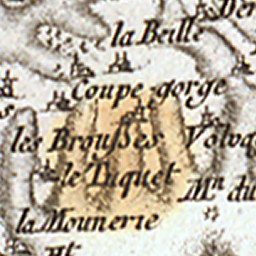 la Beille
Coupe-gorge
les Brousses
le Tuquet
Mⁿ du
la Mounerie